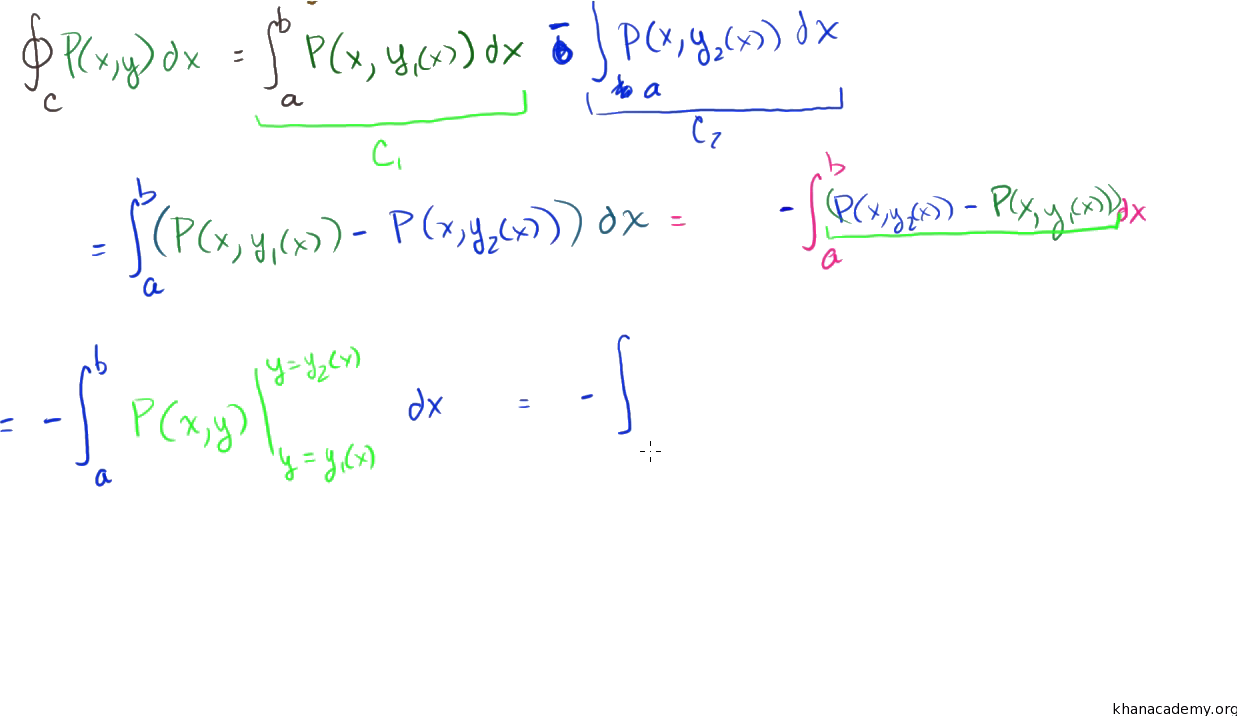 ∮_C P(x,y) dx = ∫_a^b P(x, y₁(x)) dx − ∫_a P(x, y₂(x)) dx
C₁ C₂
= ∫_a^b (P(x, y₁(x)) − P(x, y₂(x))) dx = − ∫_a^b (P(x, y₂(x)) − P(x, y₁(x))) dx
= − ∫_a^b P(x,y) |_{y = y₁(x)}^{y = y₂(x)} dx = − ∫
khanacademy.org